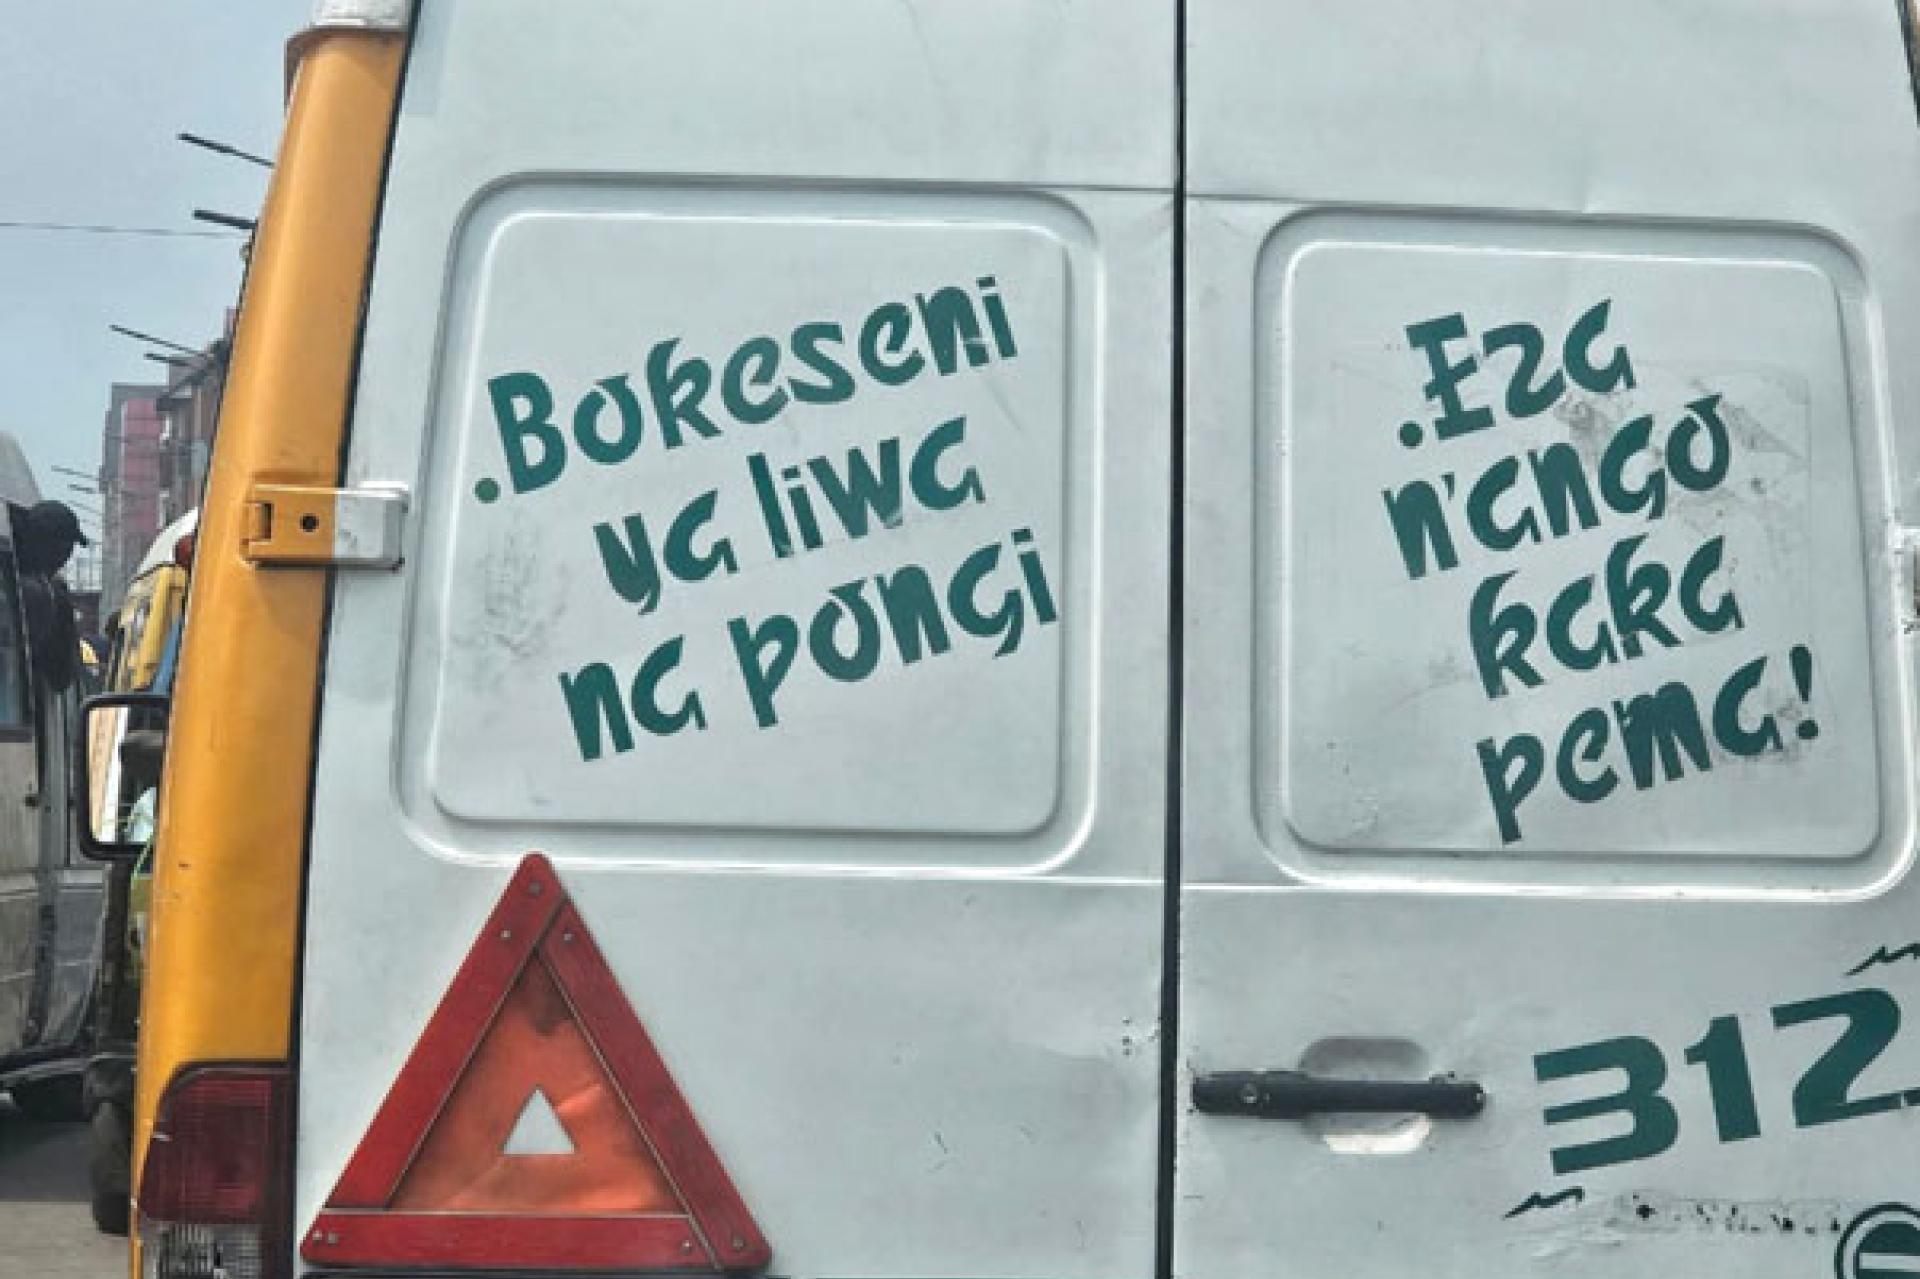 .Bokeseni
ya liwa
na pongi
.Eza
n'ango
kaka
pema!
312